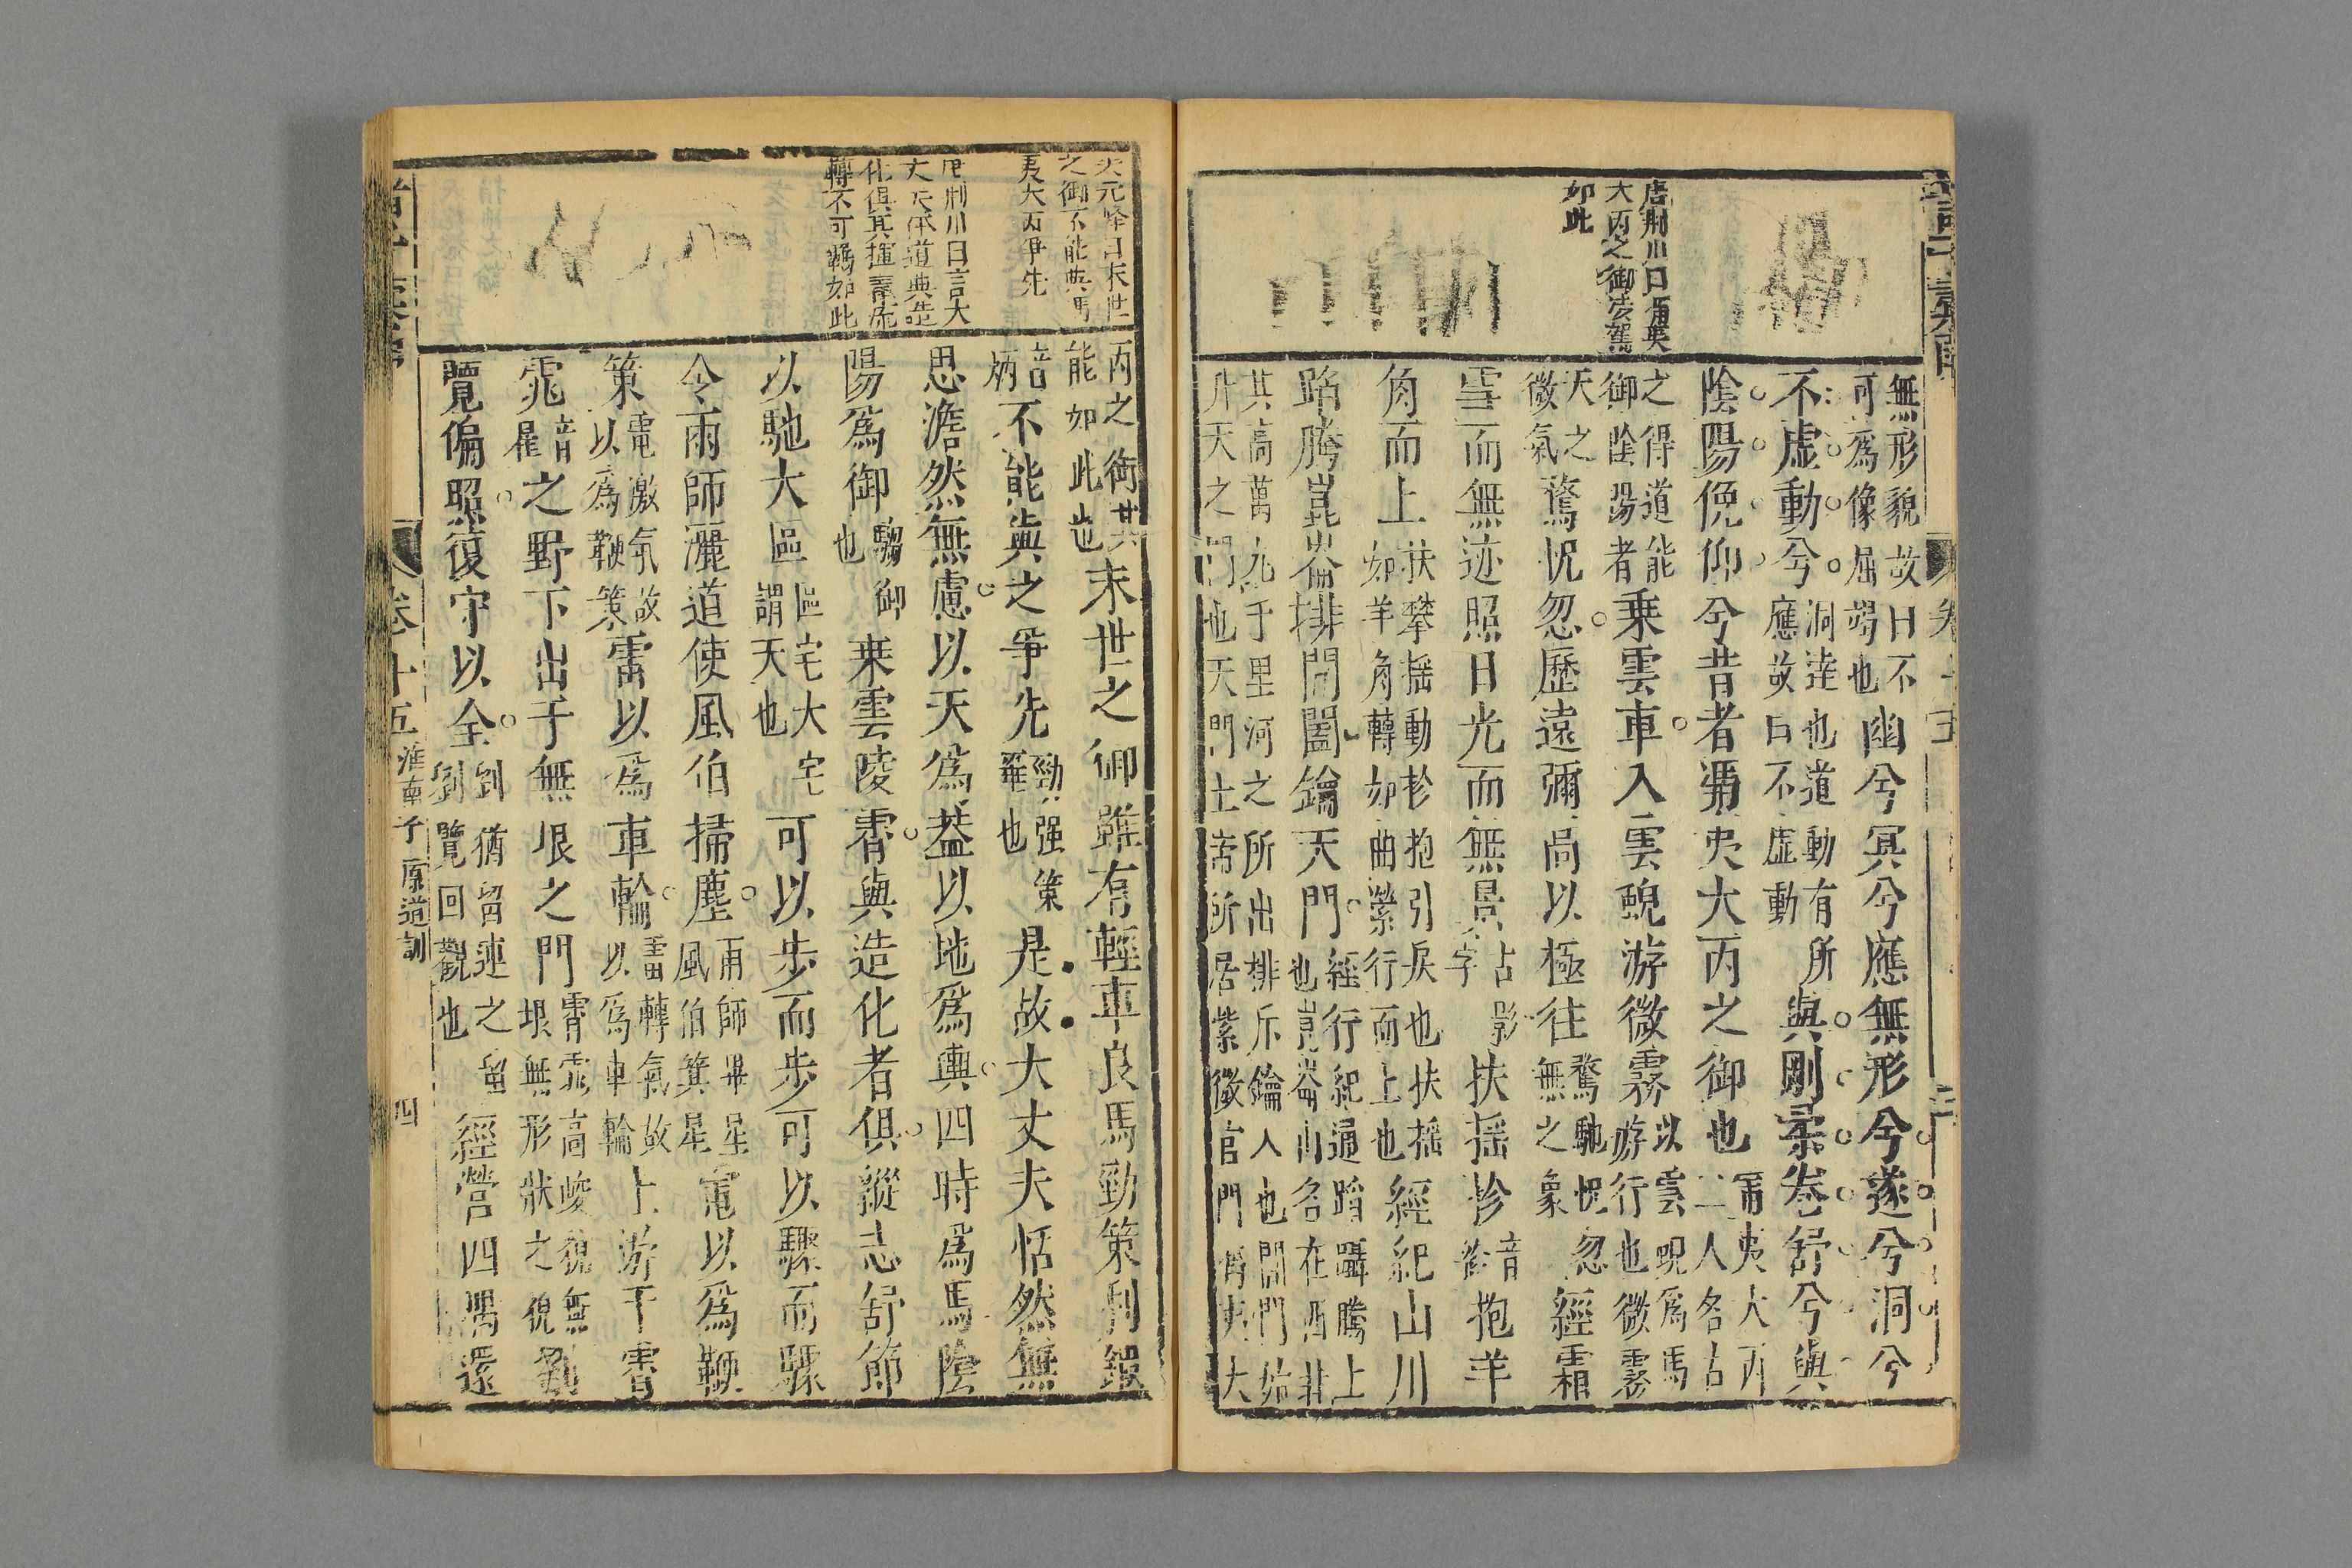 唐荊川曰馮夷
大丙之御凌駕
如此
無形貌故曰不
可爲像屈竭也
幽兮冥兮應無形兮遂兮洞兮
不虛動兮
洞達也道動有所
應故曰不虛動
與剛柔卷舒兮與
陰陽俛仰兮昔者馮夷大丙之御也
馮夷大丙
二人名古
之得道能
御陰陽者
乘雲車入雲蜺游微霧
以雲蜺爲馬
游行也微霧
天之
微氣
騖怳忽歷遠彌高以極往
騖馳怳忽
無之象
經霜
雪而無迹照日光而無景
古影
字
扶搖抮
音
抱羊
角而上
扶攀搖動抮抱引戾也扶搖
如羊角轉如曲縈行而上也
經紀山川
蹈騰崑崙排閶闔鑰天門
經行紀通蹈躡騰上
也崑崙山名在西北
其高萬九千里河之所出排斥鑰入也閶門始
升天之門也天門上帝所居紫微宮門
大
卷十五
天元 曰末世
之御不能與馮
夷大丙爭先
唐荊川曰言大
丈夫體道與造
化俱其揮霍流
轉不可羈如此
丙之御其
能如此也
末世之御雖有輕車良馬勁策利鍛
音
炳
不能與之爭先
勁强策
箠也
是故大丈夫恬然無
思澹然無慮以天爲蓋以地爲輿四時爲馬陰
陽爲御
騶御
也
乘雲陵霄與造化者俱縱志舒節
以馳大區
區宅大宅
謂天也
可以步而步可以驟而驟
令雨師灑道使風伯掃塵
雨師畢星
風伯箕星
電以爲鞭
策
電激氣故
以爲鞭策
雷以爲車輪
雷轉氣故
以爲車輪
上游于霄
雿
音
翟
之野下出于無垠之門
霄雿高峻貌無
垠無形狀之貌
劉
覽偏照復守以全
劉猶留連之留
劉覽回觀也
經營四隅還
卷十五 淮南子 原道訓 四